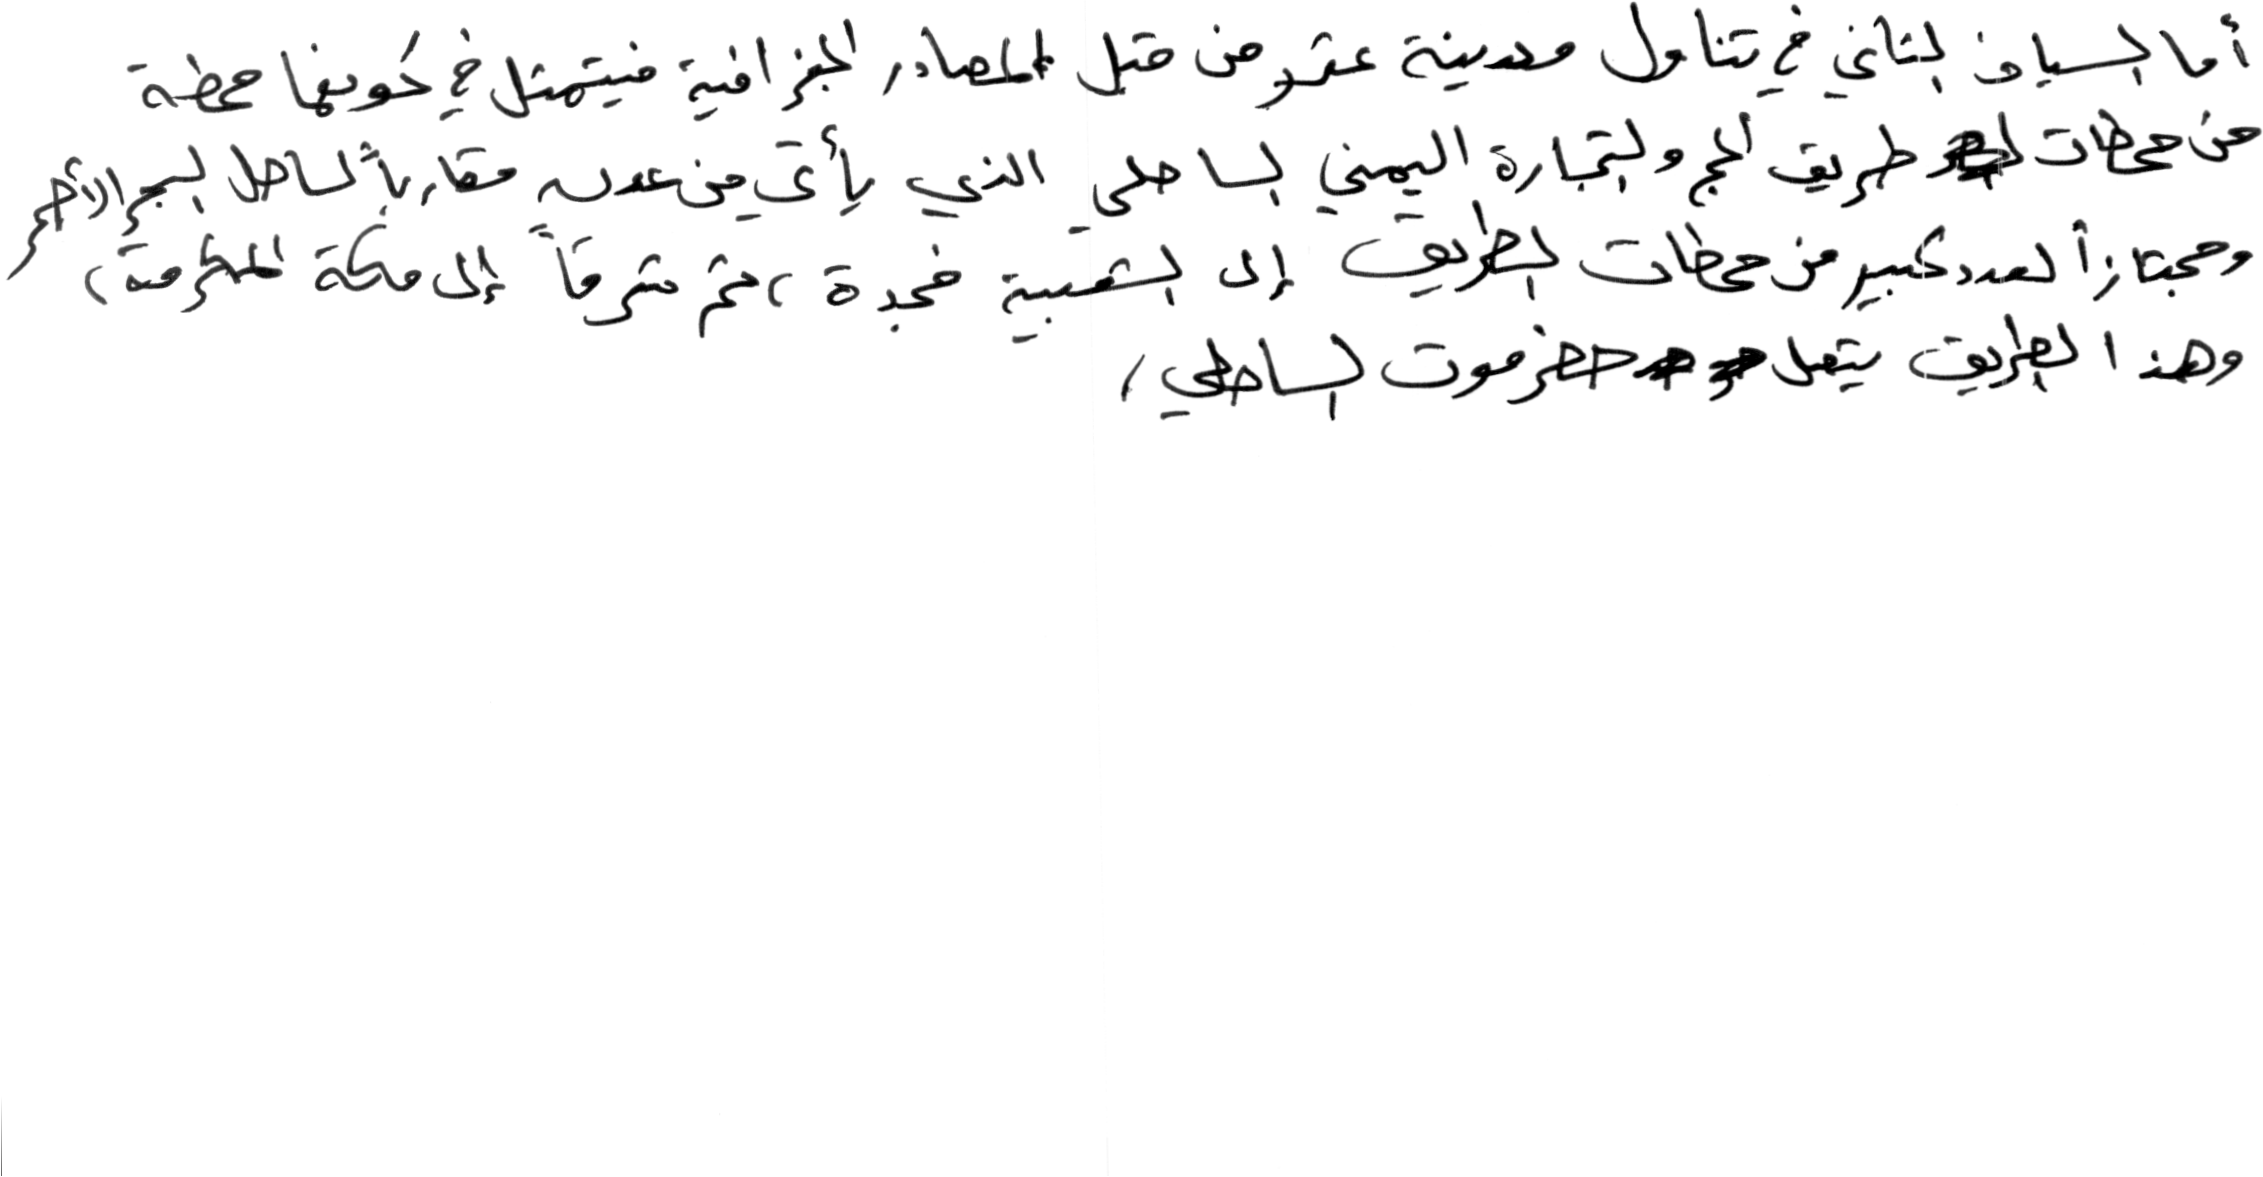 أما السياق الثاني في تناول مدينة عثر من قبل المصادر الجغرافية فيتمثل في كونها محطة
من محطات طريق الحج والتجارة اليمني الساحلي الذي يأتي من عدن مقارباً لساحل البحر الأحمر
ومجتازاً لعدد كبير من محطات الطريق إلى الشعيبة فجدة، ثم شرقاً إلى مكة المكرمة،
وهذا الطريق يتصل حضرموت الساحلي،